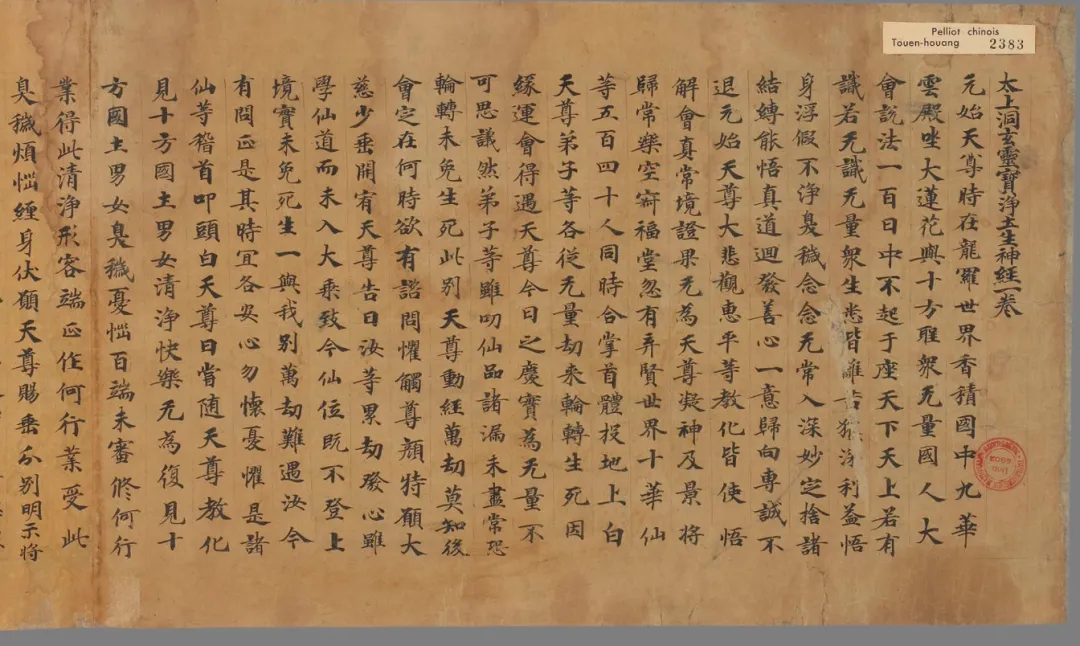 Pelliot chinois
Touen-houang 2383
太上洞玄靈寶淨土生神經一卷
元始天尊時在龍羅世界香積國中九華
雲殿坐大蓮花與十方聖衆无量國人大
會說法一百日中不起于座天下天上若有
識若无識无量衆生悉皆離苦獲泳利益悟
身浮假不淨臭穢念念无常入深妙定捨諸
結縛能悟真道迴發善心一意歸向專誠不
退元始天尊大悲觀惠平等教化皆使悟
解會真常境證果无為天尊凝神及景將
歸常樂空寂福堂忽有弃賢世界十華仙
等五百四十人同時合掌首體投地上白
天尊弟子等各從无量劫來輪轉生死因
緣運會得遇天尊今日之慶實為无量不
可思議然弟子等雖叨仙品諸漏未盡常恐
輪轉未免生死此別天尊動經萬劫莫知後
會定在何時欲有諮問懼觸尊顔特願大
慈少垂開宥天尊告曰汝等累劫發心雖
學仙道而未入大乘致今仙位既不登上
境實未免死生一與我別萬劫難遇汝今
有問正是其時宜各安心勿懷憂懼是諸
仙等稽首叩頭白天尊曰嘗随天尊教化
見十方國土男女清淨快樂无為復見十
方國土男女臭穢憂惱百端未審脩何行
業得此清淨形容端正作何行業受此
臭穢煩惱纏身伏願天尊賜垂分別明示將